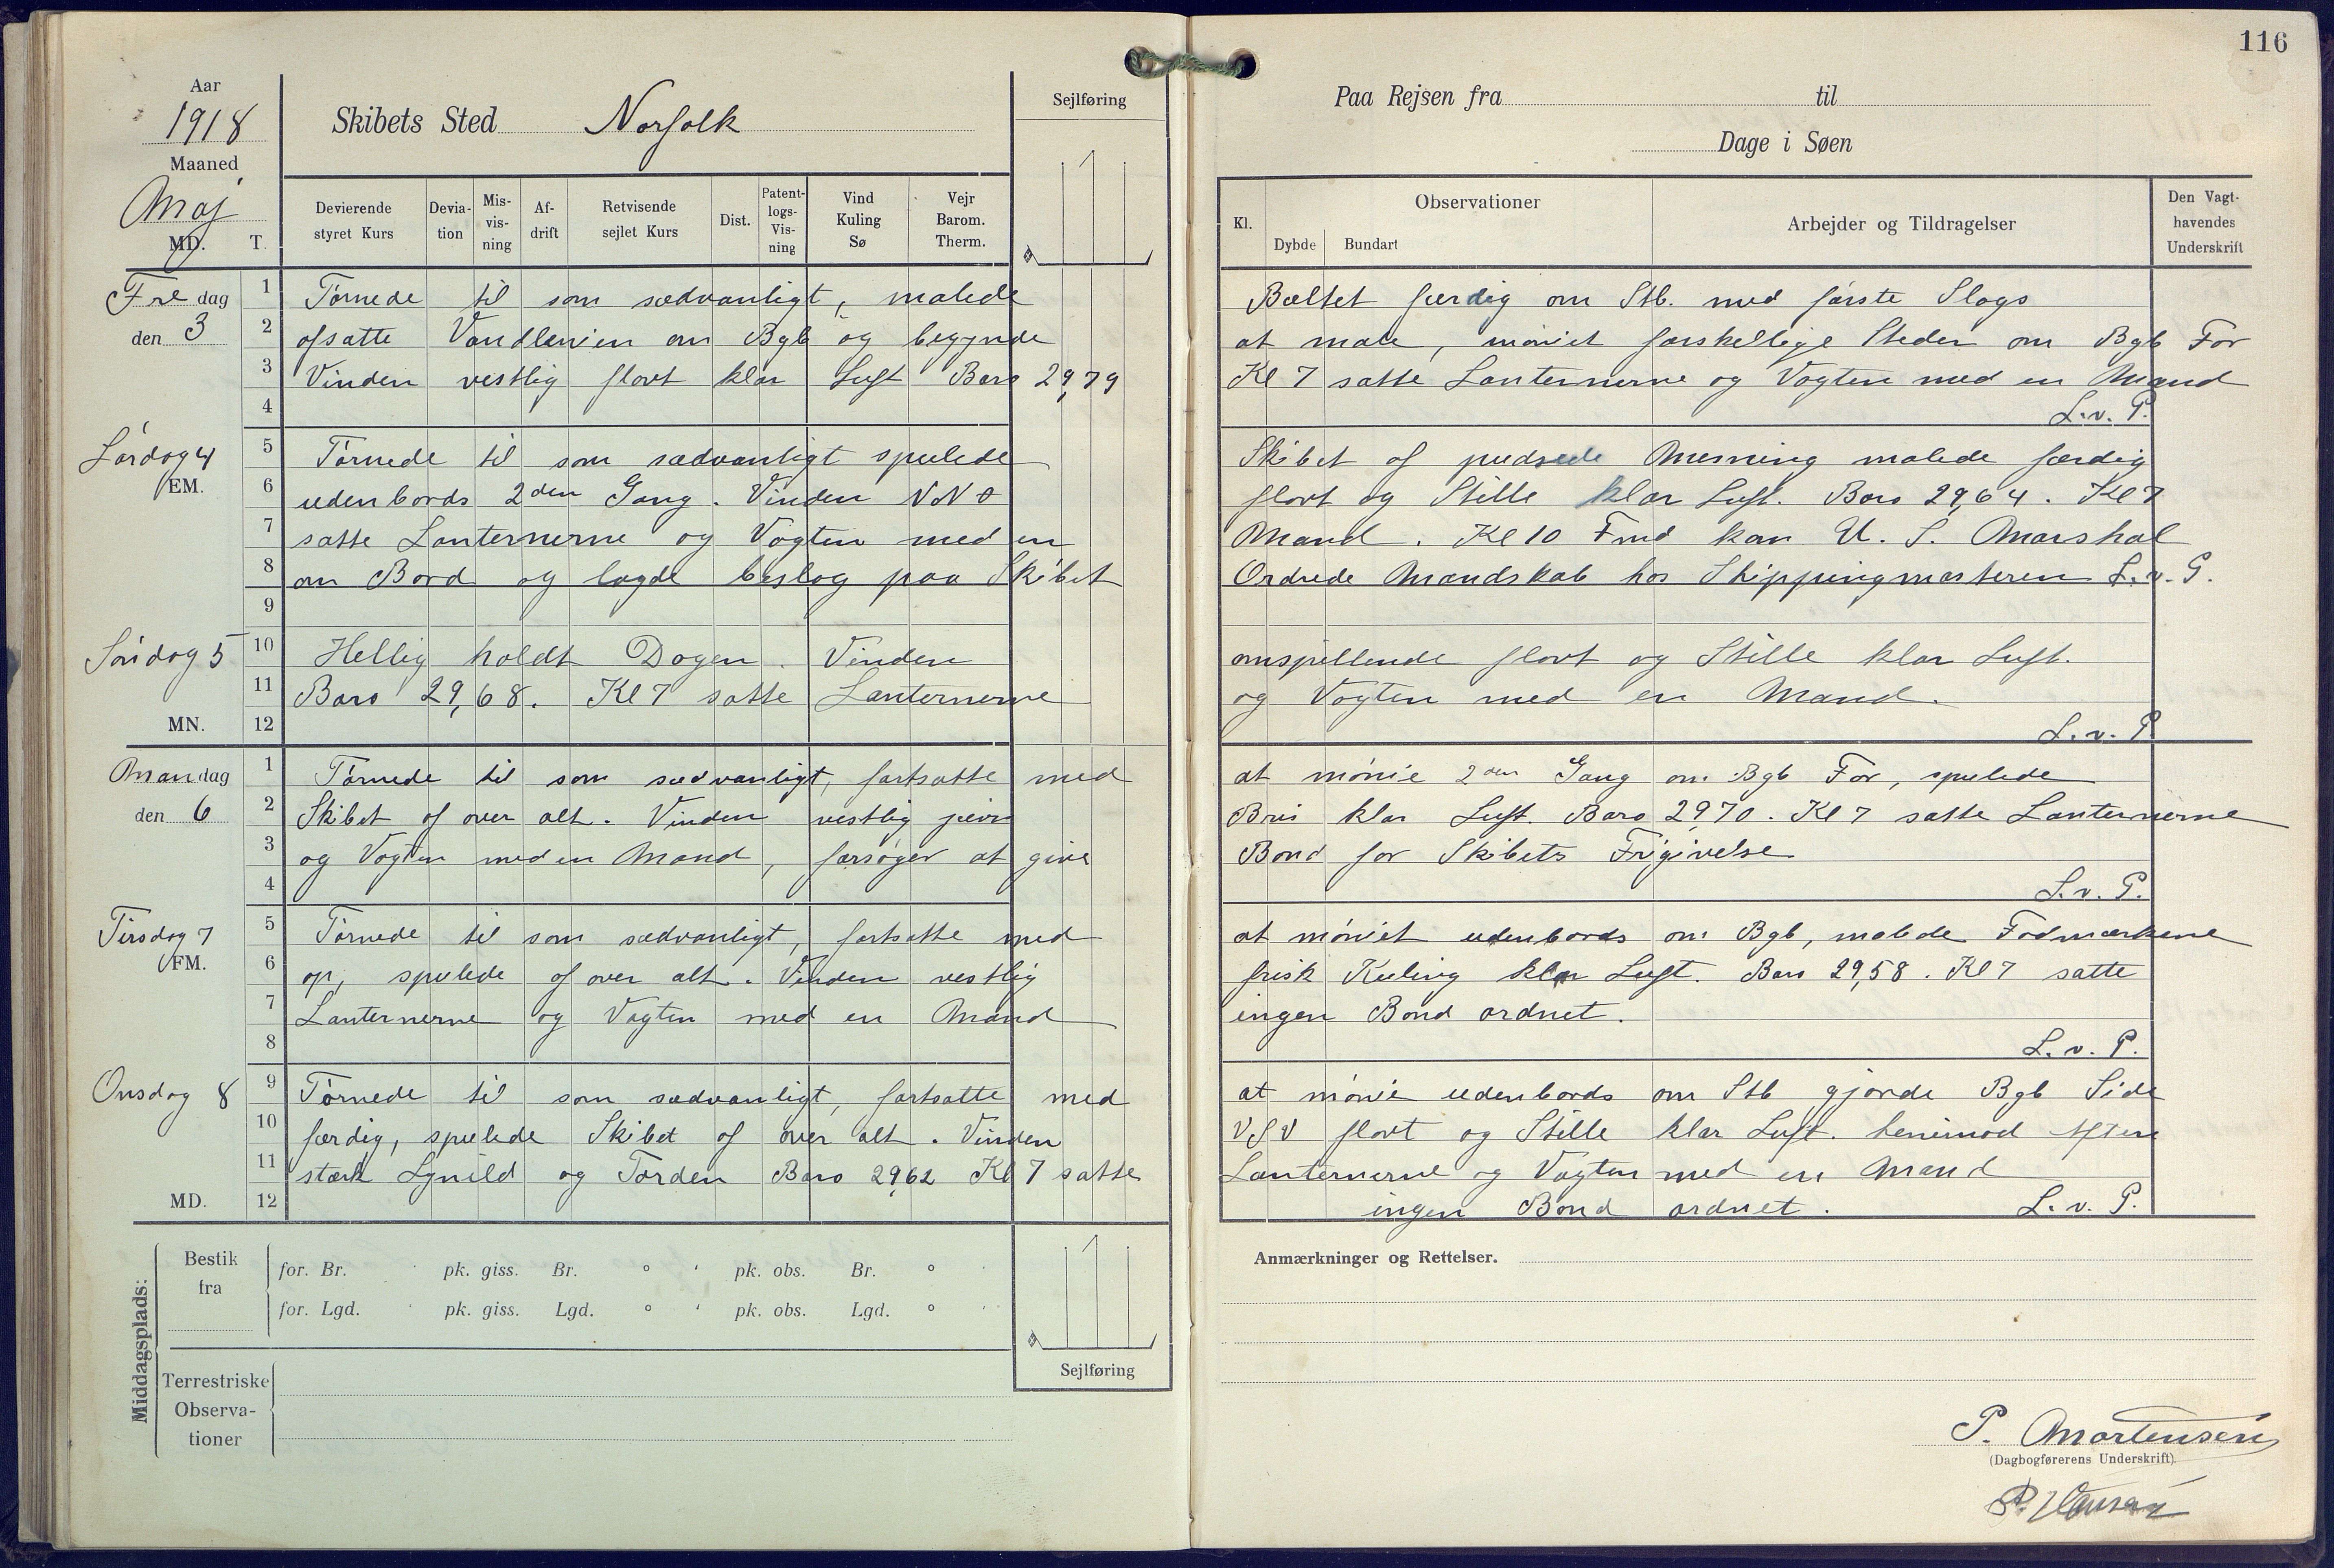 116
Aar
1918
Maaned
Maj
MD. T.
Skibets Sted Norfolk
Sejlføring
Devierende styret Kurs
Devia-tion
Mis-vis-ning
Af-drift
Retvisende sejlet Kurs
Dist.
Patent-logs-Vis-ning
Vind Kuling Sø
Vejr Barom. Therm.
Paa Rejsen fra til
Dage i Søen
Kl.
Observationer
Dybde Bundart
Arbejder og Tildragelser
Den Vagt-havendes Underskrift
Fredag den 3
1 Tørnede til som sædvanligt, malede Bæltet færdig om Stb. med første Slags
2 afsatte Vandlinien om Bgb og begynde at male, møniet forskellige Steder om Bgb For
3 Vinden vestlig flovt klar Luft Baro 29,79 Kl 7 satte Lanternerne og Vagten med en Mand
4 L.v. P.
Lørdag 4
EM.
5 Tørnede til som sædvanligt spulede Skibet af pudsede Messing malede færdig
6 udenbords 2den Gang. Vinden NNO flovt og Stille klar Luft. Baro 29,64. Kl 7
7 satte Lanternerne og Vagten med en Mand. Kl 10 Fmd kom U. S. Marshal
8 om Bord og lagde beslag paa Skibet Ordrede Mandskab hos Shippingmasteren L.v. P.
9
Søndag 5
10 Hellig holdt Dagen. Vinden omspillende flovt og Stille klar Luft.
11 Baro 29,68. Kl 7 satte Lanternerne og Vagten med en Mand.
MN. 12 L.v. P.
Mandag den 6
1 Tørnede til som sædvanligt, fortsatte med at mønie 2den Gang om Bgb For, spulede
2 Skibet af over alt. Vinden vestlig jævn Bris klar Luft. Baro 29,70. Kl 7 satte Lanternerne
3 og Vagten med en Mand, forsøger at give Bond for Skibets Frigivelse
4 L.v. P.
Tirsdag 7
FM.
5 Tørnede til som sædvanligt, fortsatte med at møniet udenbords om Bgb, malede Fodmærkene
6 op, spulede af over alt. Vinden vestlig frisk Kuling klar Luft. Baro 29,58. Kl 7 satte
7 Lanternerne og Vagten med en Mand ingen Bond ordnet.
8 L.v. P.
Onsdag 8
9 Tørnede til som sædvanligt, fortsatte med at mønie udenbords om Stb gjorde Bgb Side
10 færdig, spulede Skibet af over alt. Vinden VSV flovt og Stille klar Luft. henimod Aften
11 stærk Lynild og Torden Baro 29,62 Kl 7 satte Lanternerne og Vagten med en Mand
MD. 12 ingen Bond ordnet. L.v. P.
Middagsplads:
Bestik fra
for. Br. ' pk. giss. Br. ° ' pk. obs. Br. ° '
for. Lgd. ' pk. giss. Lgd. ° ' pk. obs. Lgd. ° '
Terrestriske Observa-tioner
Sejlføring
Anmærkninger og Rettelser.
P. Mortensen
(Dagbogførerens Underskrift).
P. Hansen